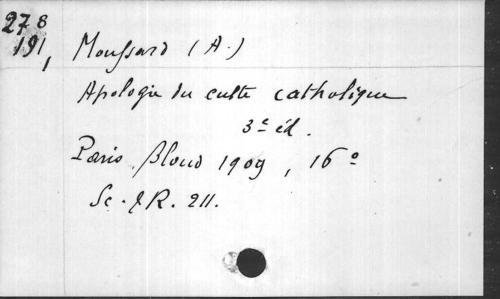 278
191, Moussard (A.)
Apologie du culte catholique
3e éd.
Paris Bloud 1909, 16°
Sc. & R. 211.